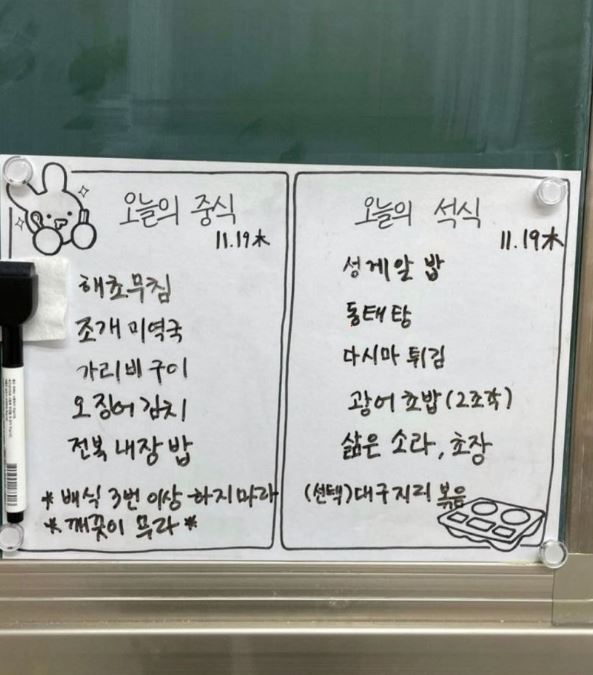 오늘의 중식
11.19木
해초무침
조개 미역국
가리비 구이
오징어 김치
전복 내장 밥
* 배식 3번 이상 하지마라
* 깨끗이 무라 *
오늘의 석식
11.19木
성게알 밥
동태탕
다시마 튀김
광어 초밥 (2조각)
삶은 소라, 초장
(선택) 대구지리 볶음